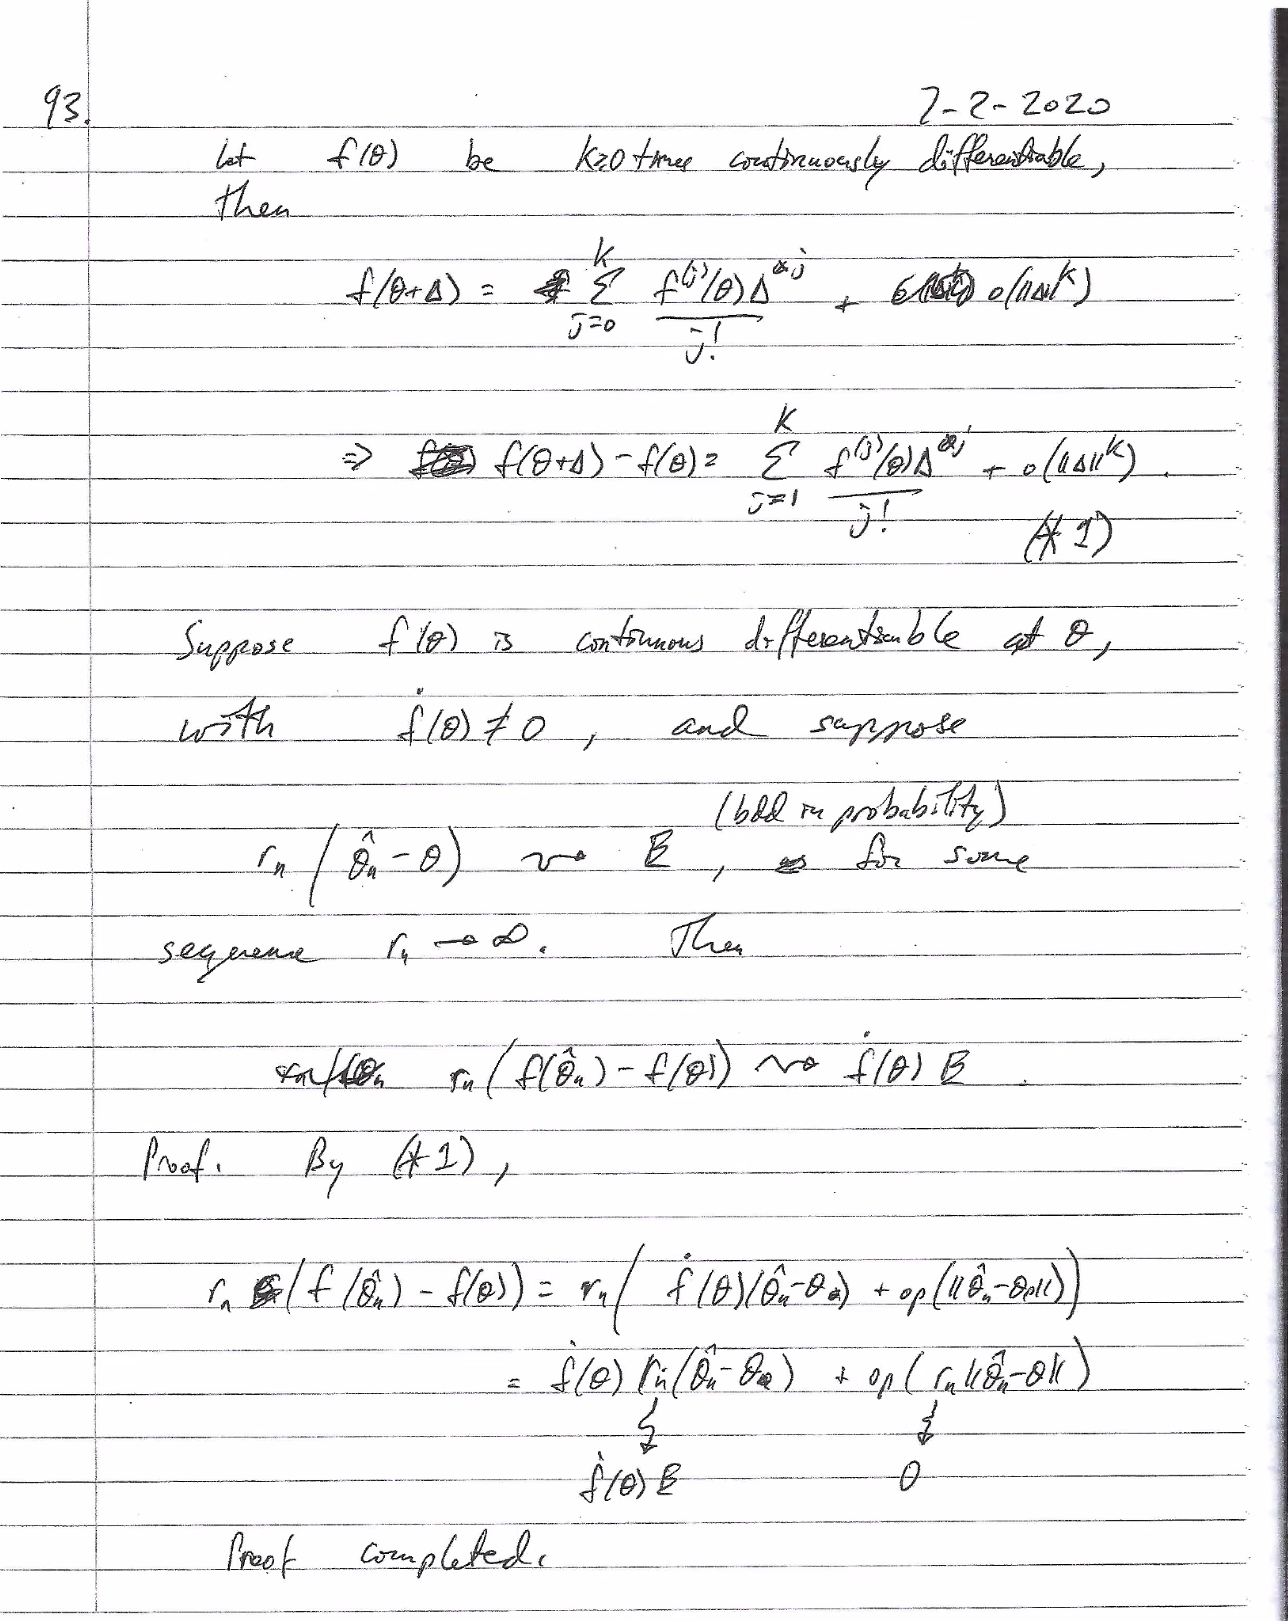 93.
7-2-2020
Let f(θ) be k≥0 times continuously differentiable,
then
f(θ+Δ) = Σ_{j=0}^{k} f^{(j)}(θ)Δ^{⊗j} / j! + o(‖Δ‖^k)
⇒ f(θ+Δ) - f(θ) = Σ_{j=1}^{k} f^{(j)}(θ)Δ^{⊗j} / j! + o(‖Δ‖^k).
(*1)
Suppose f(θ) is continuous differentiable at θ,
with ḟ(θ) ≠ 0, and suppose
(bdd in probability)
r_n (θ̂_n - θ) ⇝ Z, for some
sequence r_n → ∞. Then
r_n (f(θ̂_n) - f(θ)) ⇝ ḟ(θ) Z.
Proof. By (*1),
r_n (f(θ̂_n) - f(θ)) = r_n (ḟ(θ)(θ̂_n - θ) + op(‖θ̂_n - θ‖))
= ḟ(θ) r_n (θ̂_n - θ) + op(r_n‖θ̂_n - θ‖)
ḟ(θ) Z 0
Proof completed.